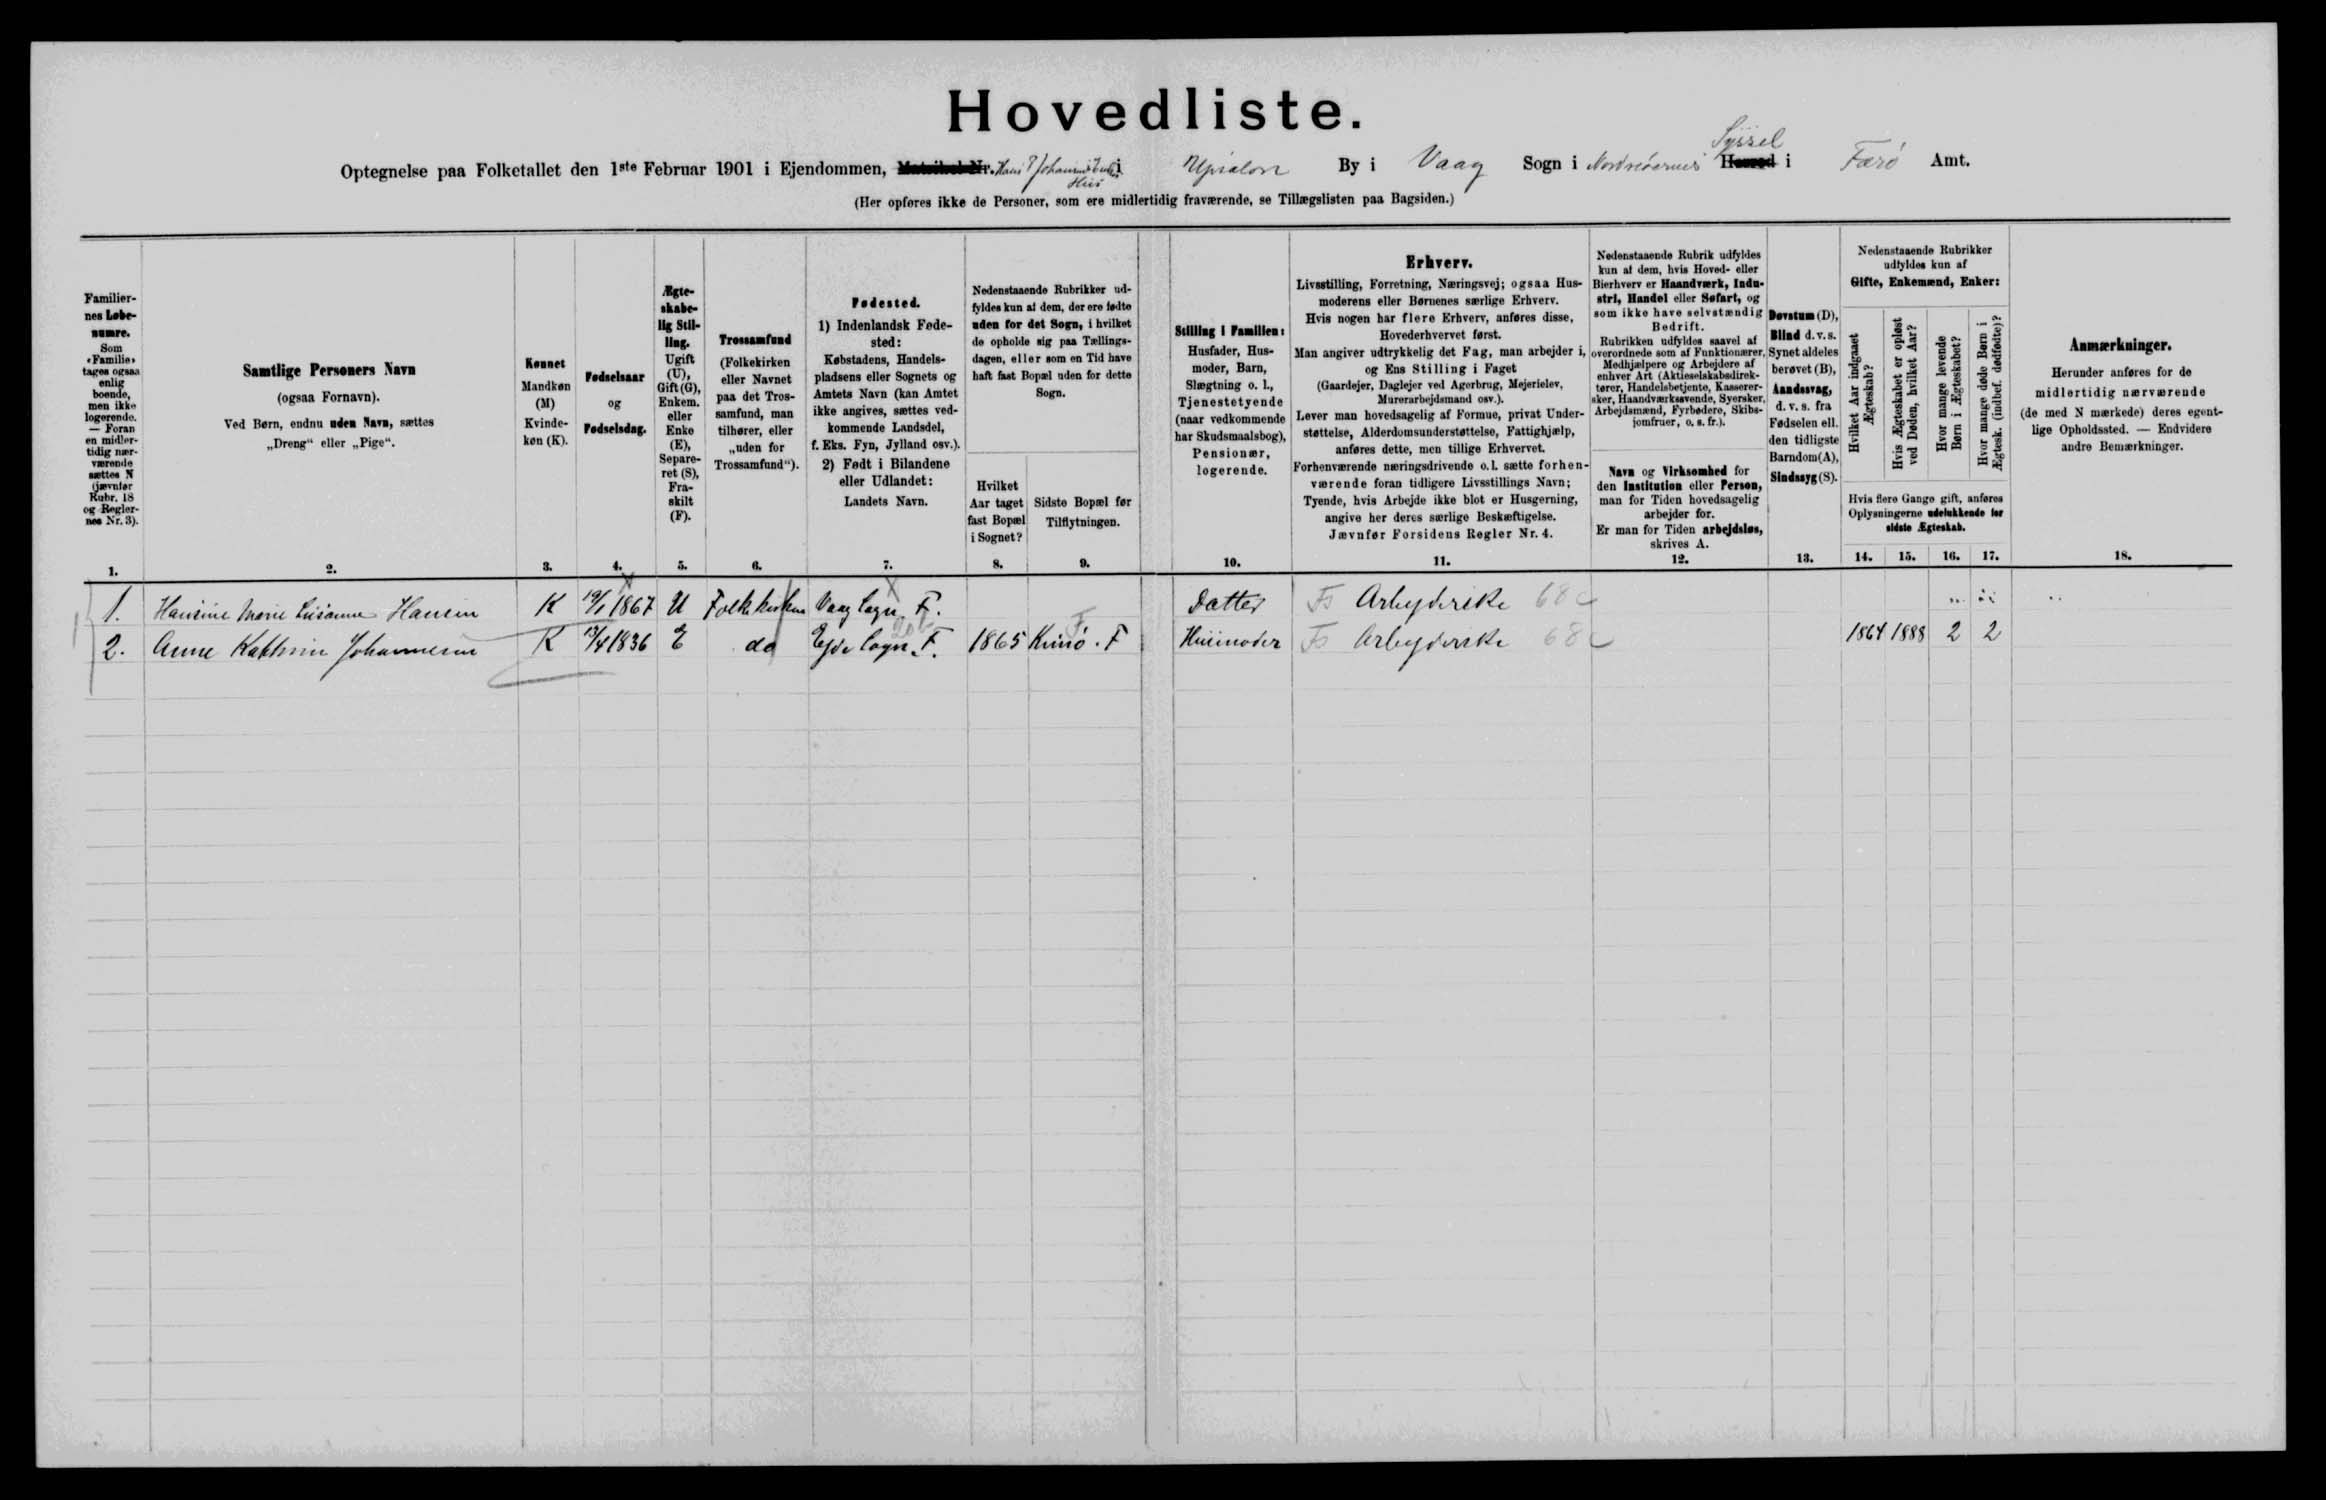 Hovedliste.
Optegnelse paa Folketallet den 1ste Februar 1901 i Ejendommen, Matrikel Nr. Hans i Upsalon By i Vaag Sogn i Nordreøernes Herred i Færø Amt.
Syssel
Hus
(Her opføres ikke de Personer, som ere midlertidig fraværende, se Tillægslisten paa Bagsiden.)
Familier-
nes Løbe-
numre.
Som
«Familie»
tages ogsaa
enlig
boende,
men ikke
logerende.
— Foran
en midler-
tidig nær-
værende
sættes N
(jævnfør
Rubr. 18
og Regler-
nes Nr. 3).
1.
Samtlige Personers Navn
(ogsaa Fornavn).
Ved Børn, endnu uden Navn, sættes
„Dreng“ eller „Pige“.
2.
Kønnet
Mandkøn
(M)
Kvinde-
køn (K).
3.
Fødselsaar
og
Fødselsdag.
4.
Ægte-
skabe-
lig Stil-
ling.
Ugift
(U),
Gift (G),
Enkem.
eller
Enke
(E),
Separe-
ret (S),
Fra-
skilt
(F).
5.
Trossamfund
(Folkekirken
eller Navnet
paa det Tros-
samfund, man
tilhører, eller
„uden for
Trossamfund“).
6.
Fødested.
1) Indenlandsk Føde-
sted:
Købstadens, Handels-
pladsens eller Sognets og
Amtets Navn (kan Amtet
ikke angives, sættes ved-
kommende Landsdel,
f. Eks. Fyn, Jylland osv.).
2) Født i Bilandene
eller Udlandet:
Landets Navn.
7.
Nedenstaaende Rubrikker ud-
fyldes kun af dem, der ere fødte
uden for det Sogn, i hvilket
de opholde sig paa Tællings-
dagen, eller som en Tid have
haft fast Bopæl uden for dette
Sogn.
Hvilket
Aar taget
fast Bopæl
i Sognet?
8.
Sidste Bopæl før
Tilflytningen.
9.
Stilling i Familien:
Husfader, Hus-
moder, Barn,
Slægtning o. l.,
Tjenestetyende
(naar vedkommende
har Skudsmaalsbog),
Pensionær,
logerende.
10.
Erhverv.
Livsstilling, Forretning, Næringsvej; ogsaa Hus-
moderens eller Børnenes særlige Erhverv.
Hvis nogen har flere Erhverv, anføres disse,
Hovederhvervet først.
Man angiver udtrykkelig det Fag, man arbejder i,
og Ens Stilling i Faget
(Gaardejer, Daglejer ved Agerbrug, Mejerielev,
Murerarbejdsmand osv.).
Lever man hovedsagelig af Formue, privat Under-
støttelse, Alderdomsunderstøttelse, Fattighjælp,
anføres dette, men tillige Erhvervet.
Forhenværende næringsdrivende o. l. sætte forhen-
værende foran tidligere Livsstillings Navn;
Tyende, hvis Arbejde ikke blot er Husgerning,
angive her deres særlige Beskæftigelse.
Jævnfør Forsidens Regler Nr. 4.
11.
Nedenstaaende Rubrik udfyldes
kun af dem, hvis Hoved- eller
Bierhverv er Haandværk, Indu-
stri, Handel eller Søfart, og
som ikke have selvstændig
Bedrift.
Rubrikken udfyldes saavel af
overordnede som af Funktionærer,
Medhjælpere og Arbejdere af
enhver Art (Aktieselskabsdirek-
tører, Handelsbetjente, Kasserer-
sker, Haandværkssvende, Syersker,
Arbejdsmænd, Fyrbødere, Skibs-
jomfruer, o. s. fr.).
Navn og Virksomhed for
den Institution eller Person,
man for Tiden hovedsagelig
arbejder for.
Er man for Tiden arbejdsløs,
skrives A.
12.
Døvstum (D),
Blind d. v. s.
Synet aldeles
berøvet (B),
Aandssvag,
d. v. s. fra
Fødselen ell.
den tidligste
Barndom (A),
Sindssyg (S).
13.
Nedenstaaende Rubrikker
udfyldes kun af
Gifte, Enkemænd, Enker:
Hvilket Aar indgaaet
Ægteskab?
Hvis Ægteskabet er opløst
ved Døden, hvilket Aar?
Hvor mange levende
Børn i Ægteskabet?
Hvor mange døde Børn i
Ægtesk. (indbef. dødfødte)?
Hvis flere Gange gift, anføres
Oplysningerne udelukkende for
sidste Ægteskab.
14. 15. 16. 17.
Anmærkninger.
Herunder anføres for de
midlertidig nærværende
(de med N mærkede) deres egent-
lige Opholdssted. — Endvidere
andre Bemærkninger.
18.
1. Hansine Marie Susanne Hansen K 19/1 1867 U Folkekirken Vaag Sogn, F. Datter Fs Arbejderske 68c
2. Anne Kathrine Johannesen K 13/4 1836 E do Ejde Sogn, F. 1865 Kunø. F Husmoder Fs Arbejderske 68c 1864 1888 2 2